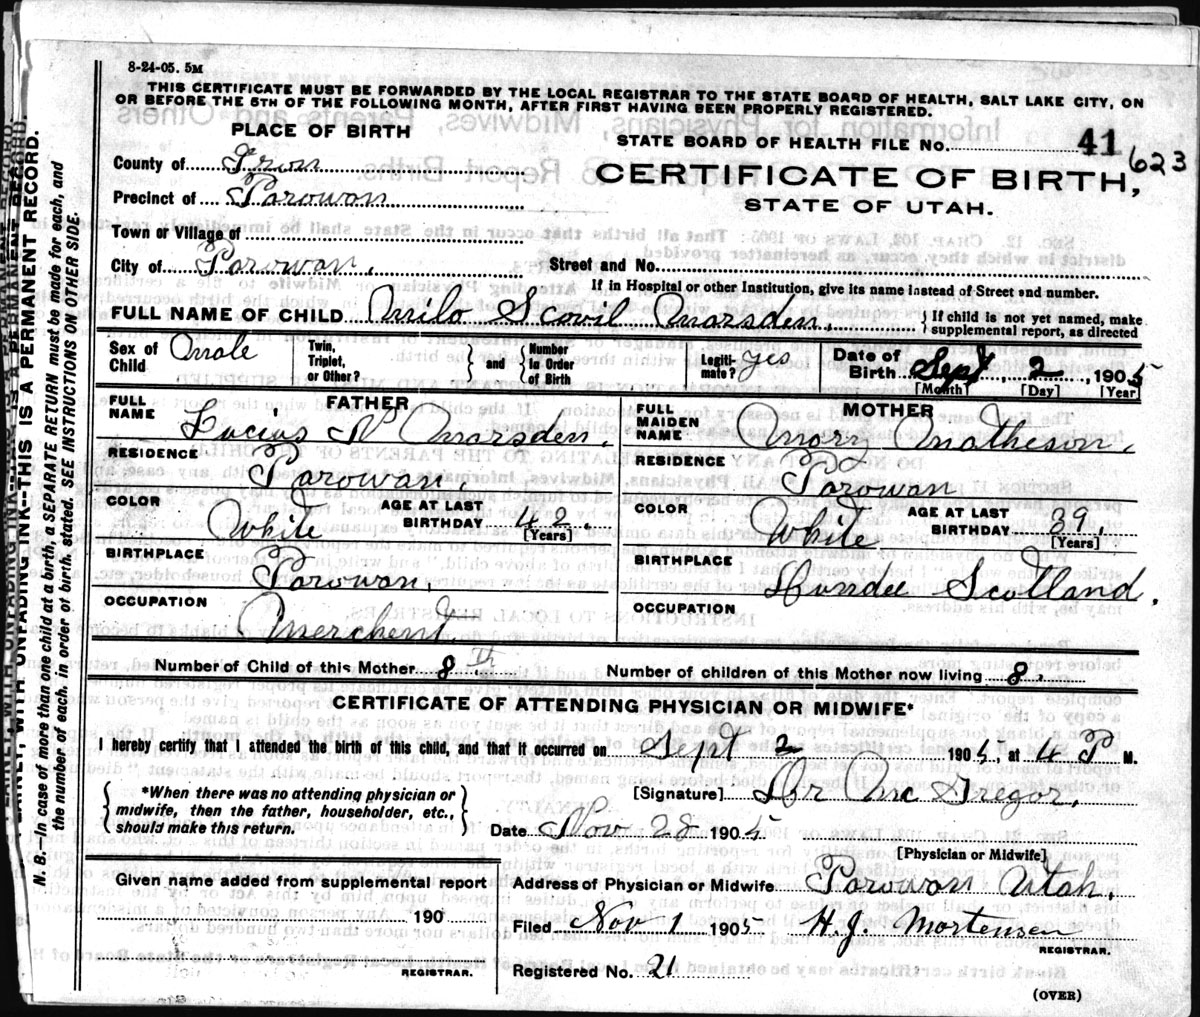 8-24-05. 5M
THIS CERTIFICATE MUST BE FORWARDED BY THE LOCAL REGISTRAR TO THE STATE BOARD OF HEALTH, SALT LAKE CITY, ON
OR BEFORE THE 5TH OF THE FOLLOWING MONTH, AFTER FIRST HAVING BEEN PROPERLY REGISTERED.
PLACE OF BIRTH
STATE BOARD OF HEALTH FILE NO. 41 623
County of Iron
CERTIFICATE OF BIRTH,
Precinct of Parowan
STATE OF UTAH.
Town or Village of
City of Parowan, Street and No.
If in Hospital or other Institution, give its name instead of Street and number.
FULL NAME OF CHILD Milo Scovil Marsden, } If child is not yet named, make supplemental report, as directed
Sex of Child Male Twin, Triplet, or Other? } and { Number in Order of Birth Legiti-mate? yes Date of Birth Sept, 2, 1905
[Month] [Day] [Year]
FATHER
FULL NAME Lucius N Marsden,
RESIDENCE Parowan,
COLOR White AGE AT LAST BIRTHDAY 42, [Years]
BIRTHPLACE Parowan,
OCCUPATION Merchent
MOTHER
FULL MAIDEN NAME Mary Matheson,
RESIDENCE Parowan
COLOR White AGE AT LAST BIRTHDAY 39, [Years]
BIRTHPLACE Dundee Scotland.
OCCUPATION
Number of Child of this Mother 8th Number of children of this Mother now living 8,
CERTIFICATE OF ATTENDING PHYSICIAN OR MIDWIFE*
I hereby certify that I attended the birth of this child, and that it occurred on Sept 2 1905, at 4 P M.
{ *When there was no attending physician or midwife, then the father, householder, etc., should make this return. }
[Signature] Dr Mc Gregor,
Date Nov 28 1905
[Physician or Midwife]
Given name added from supplemental report
190
REGISTRAR.
Address of Physician or Midwife Parowan Utah,
Filed Nov 1 1905 H. J. Mortensen
REGISTRAR.
Registered No. 21
(OVER)
PLAINLY, WITH UNFADING INK--THIS IS A PERMANENT RECORD.
N. B.--In case of more than one child at a birth, a SEPARATE RETURN must be made for each, and
the number of each, in order of birth, stated. SEE INSTRUCTIONS ON OTHER SIDE.